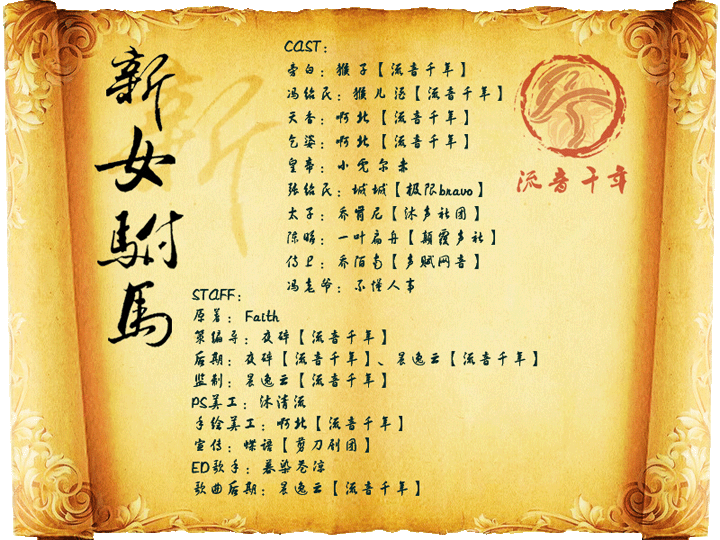 新女駙馬
新
CAST：
旁白：猴子【流音千年】
冯绍民：猴儿酒【流音千年】
天香：啊北【流音千年】
乞婆：啊北【流音千年】
皇帝：小秃尔赤
张绍民：城城【极限bravo】
太子：乔肯尼【沐声社团】
陈晞：一叶扁舟【颠覆声社】
侍卫：乔陌南【声赋网音】
冯老爷：不懂人事
流音千年
STAFF：
原著：Faith
策编导：夜碎【流音千年】
后期：夜碎【流音千年】、晨逸云【流音千年】
监制：晨逸云【流音千年】
PS美工：沐清流
手绘美工：啊北【流音千年】
宣传：蝶语【剪刀剧团】
ED歌手：暮染苍凉
歌曲后期：晨逸云【流音千年】